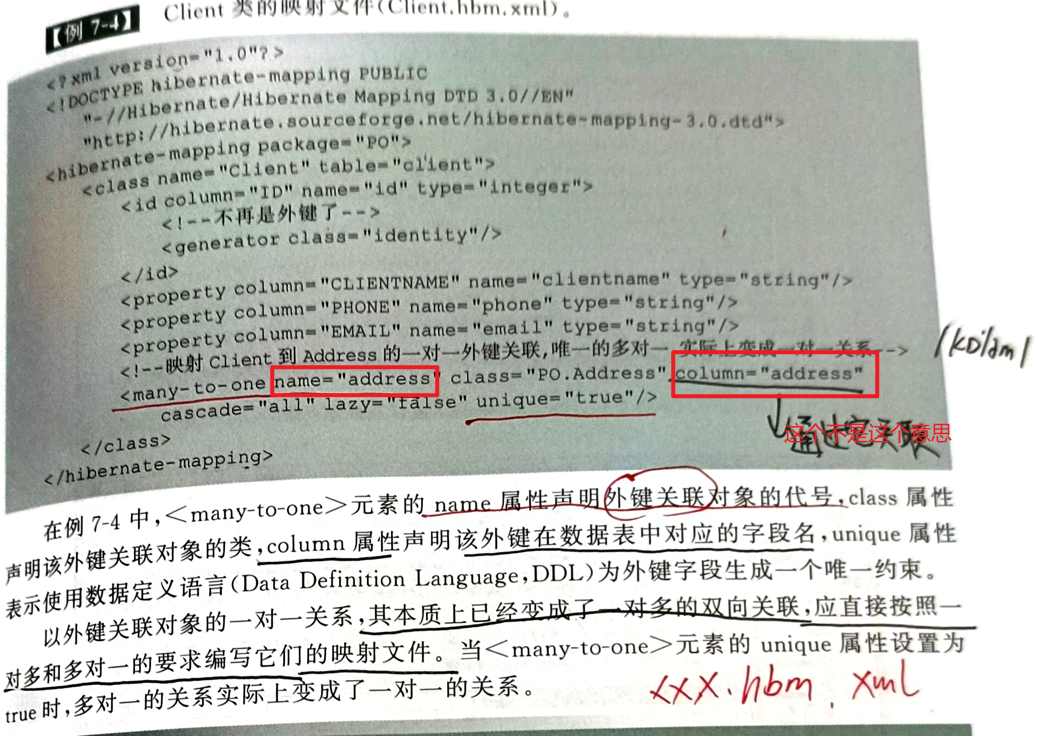 【例 7-4】 Client 类的映射文件(Client.hbm.xml)。
<?xml version="1.0"?>
<!DOCTYPE hibernate-mapping PUBLIC
"-//Hibernate/Hibernate Mapping DTD 3.0//EN"
"http://hibernate.sourceforge.net/hibernate-mapping-3.0.dtd">
<hibernate-mapping package="PO">
<class name="Client" table="client">
<id column="ID" name="id" type="integer">
<!--不再是外键了-->
<generator class="identity"/>
</id>
<property column="CLIENTNAME" name="clientname" type="string"/>
<property column="PHONE" name="phone" type="string"/>
<property column="EMAIL" name="email" type="string"/>
<!--映射 Client 到 Address 的一对一外键关联,唯一的多对一 实际上变成一对一关系-->
<many-to-one name="address" class="PO.Address" column="address"
cascade="all" lazy="false" unique="true"/>
通过它关联
这个不是这个意思
</class>
</hibernate-mapping>
在例 7-4 中,<many-to-one>元素的 name 属性声明外键关联对象的代号,class 属性
声明该外键关联对象的类,column 属性声明该外键在数据表中对应的字段名,unique 属性
表示使用数据定义语言(Data Definition Language,DDL)为外键字段生成一个唯一约束。
以外键关联对象的一对一关系,其本质上已经变成了一对多的双向关联,应直接按照一
对多和多对一的要求编写它们的映射文件。当<many-to-one>元素的 unique 属性设置为
true 时,多对一的关系实际上变成了一对一的关系。
xxx.hbm.xml